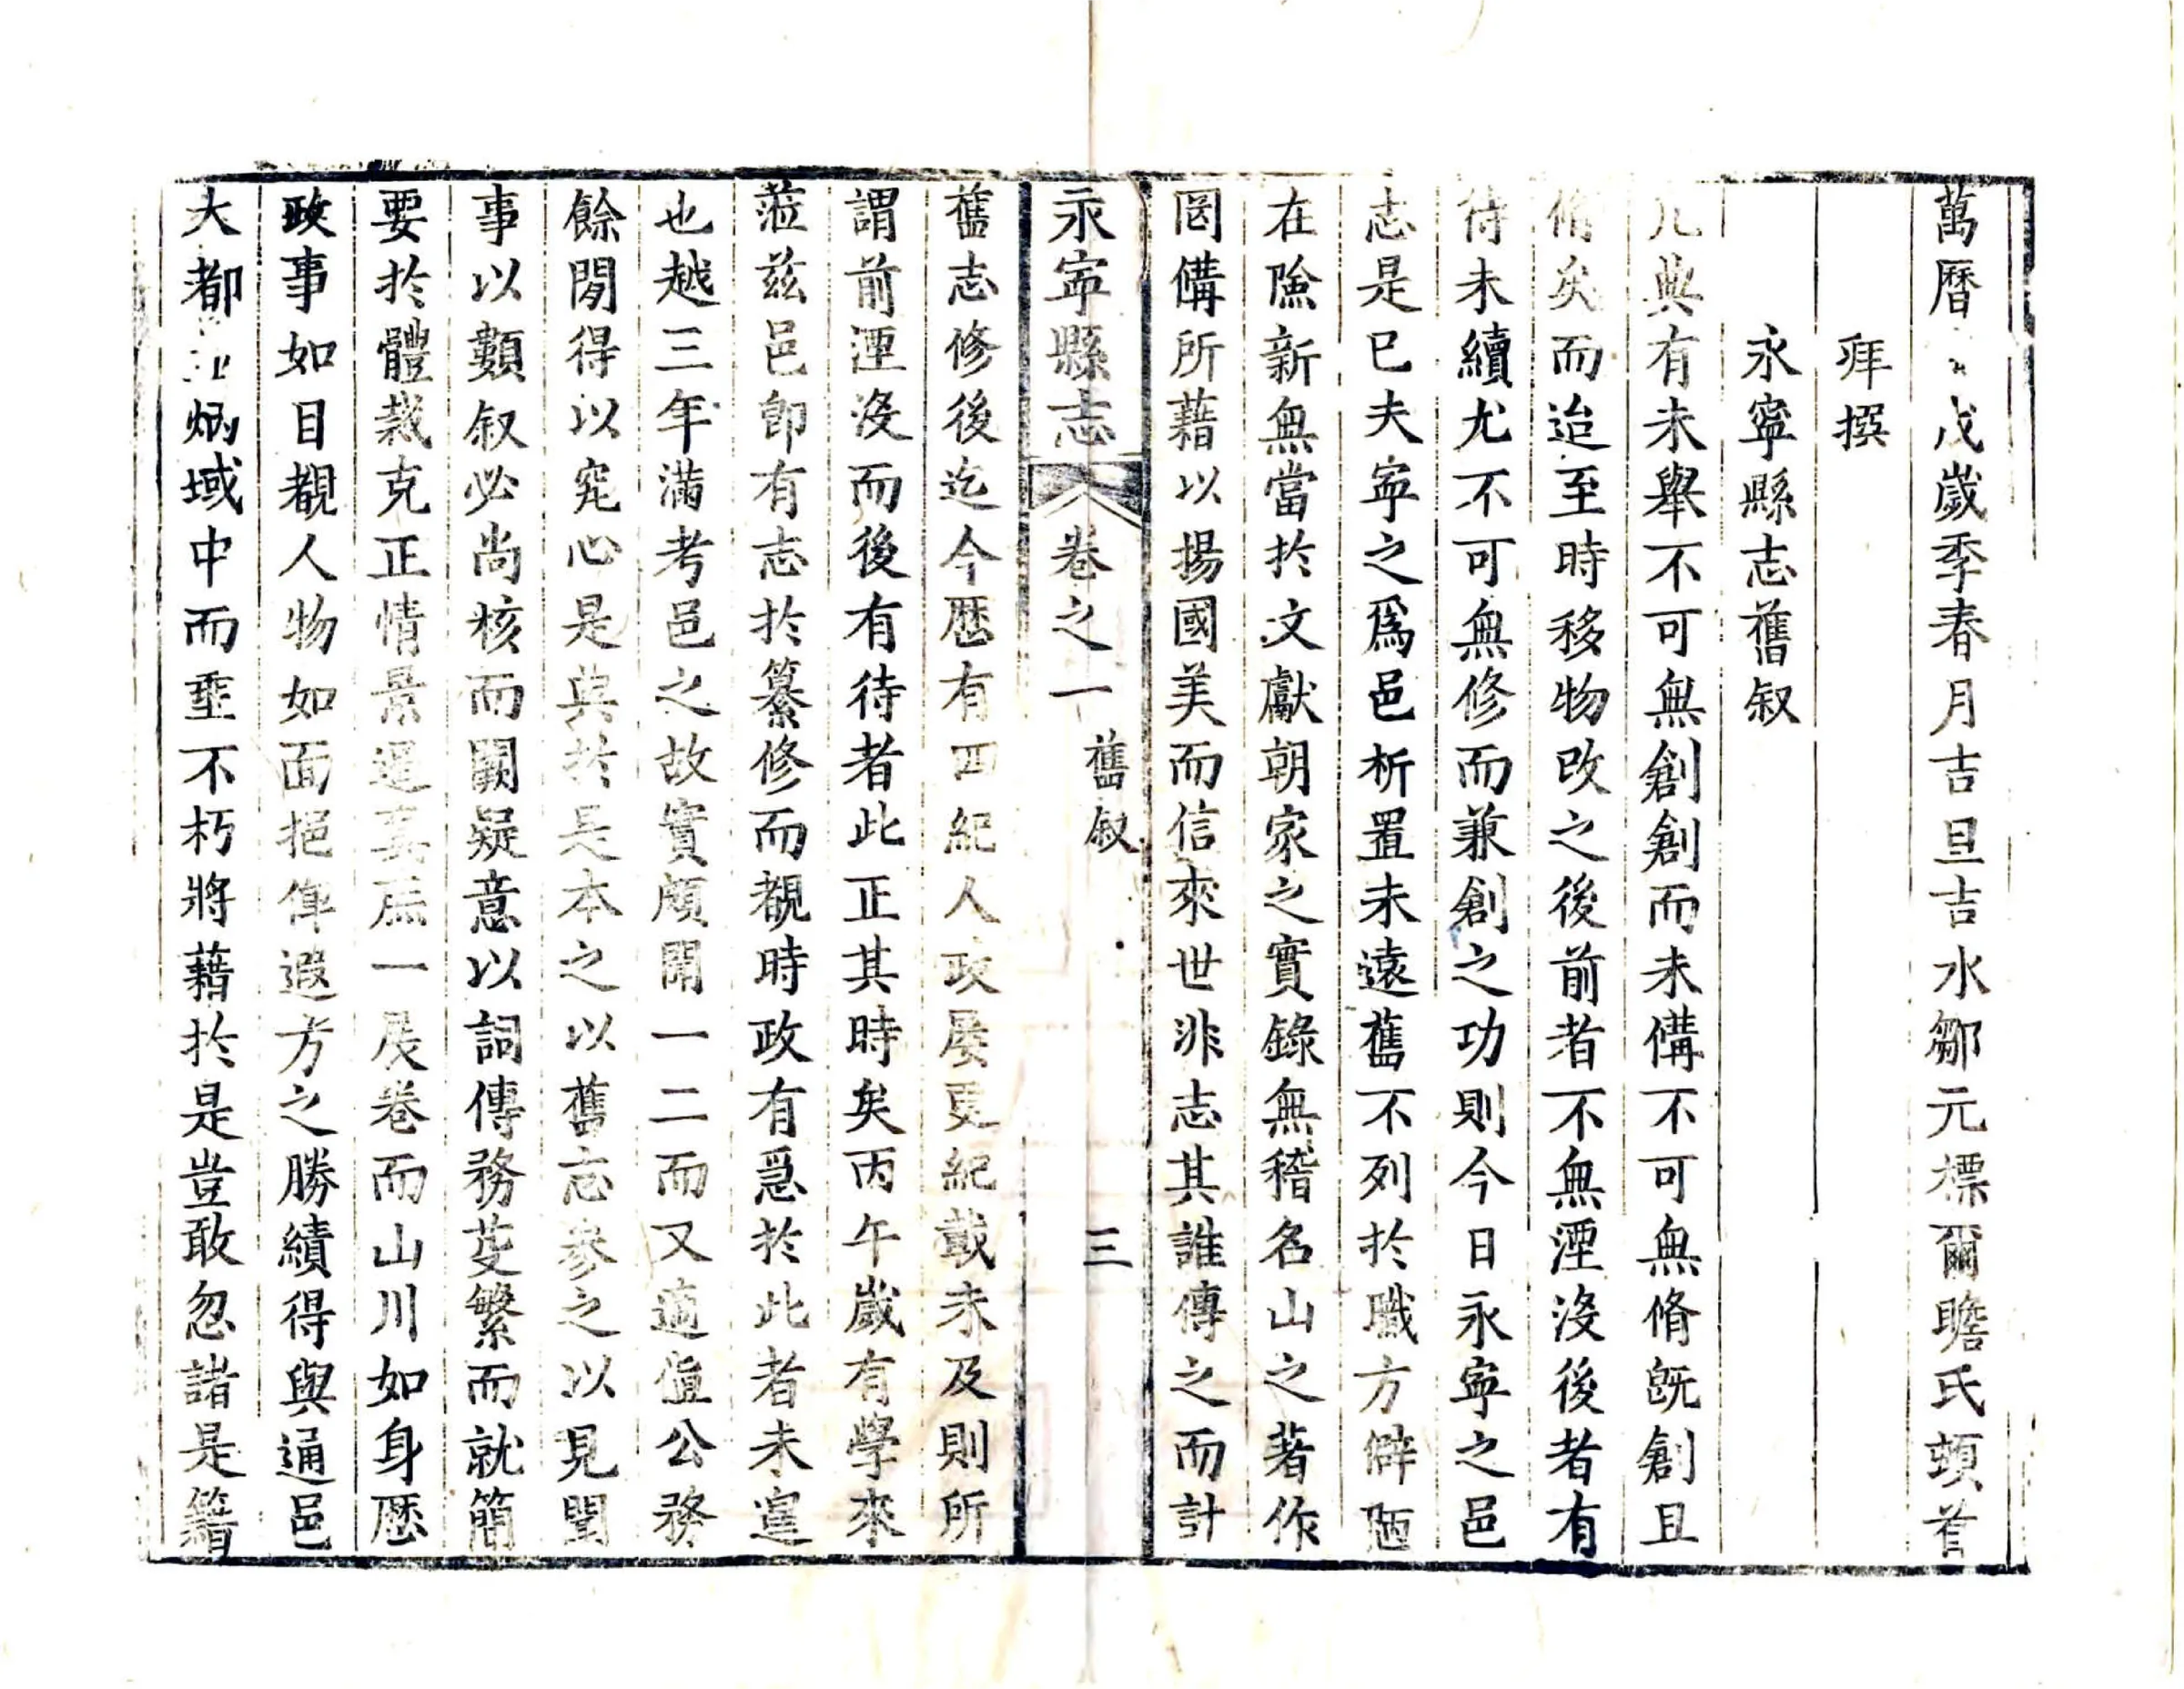 萬曆戊歲季春月吉旦吉水鄒元標爾瞻氏頓首
拜撰
永寧縣志舊叙
凡典有未舉不可無創創而未備不可無脩旣創且
脩矣而迨至時移物改之後前者不無湮沒後者有
待未續尤不可無修而兼創之功則今日永寧之邑
志是已夫寧之爲邑析置未遠舊不列於職方僻陋
在險新無當於文獻朝家之實錄無稽名山之著作
罔備所藉以揚國美而信來世非志其誰傳之而計
永寧縣志 卷之一 舊叙 三
舊志修後迄今歷有四紀人政屡更紀載未及則所
謂前湮沒而後有待者此正其時矣丙午歲有學來
蒞茲邑卽有志於纂修而覩時政有急於此者未遑
也越三年滿考邑之故實頗聞一二而又適值公務
餘閒得以究心是典於是本之以舊志參之以見聞
事以類叙必尚核而闕疑意以詞傳務芟繁而就簡
要於體裁克正情景逼真庶一展卷而山川如身歷
政事如目覩人物如面挹俾遐方之勝績得與通邑
大都炳域中而垂不朽將藉於是豈敢忽諸是籍